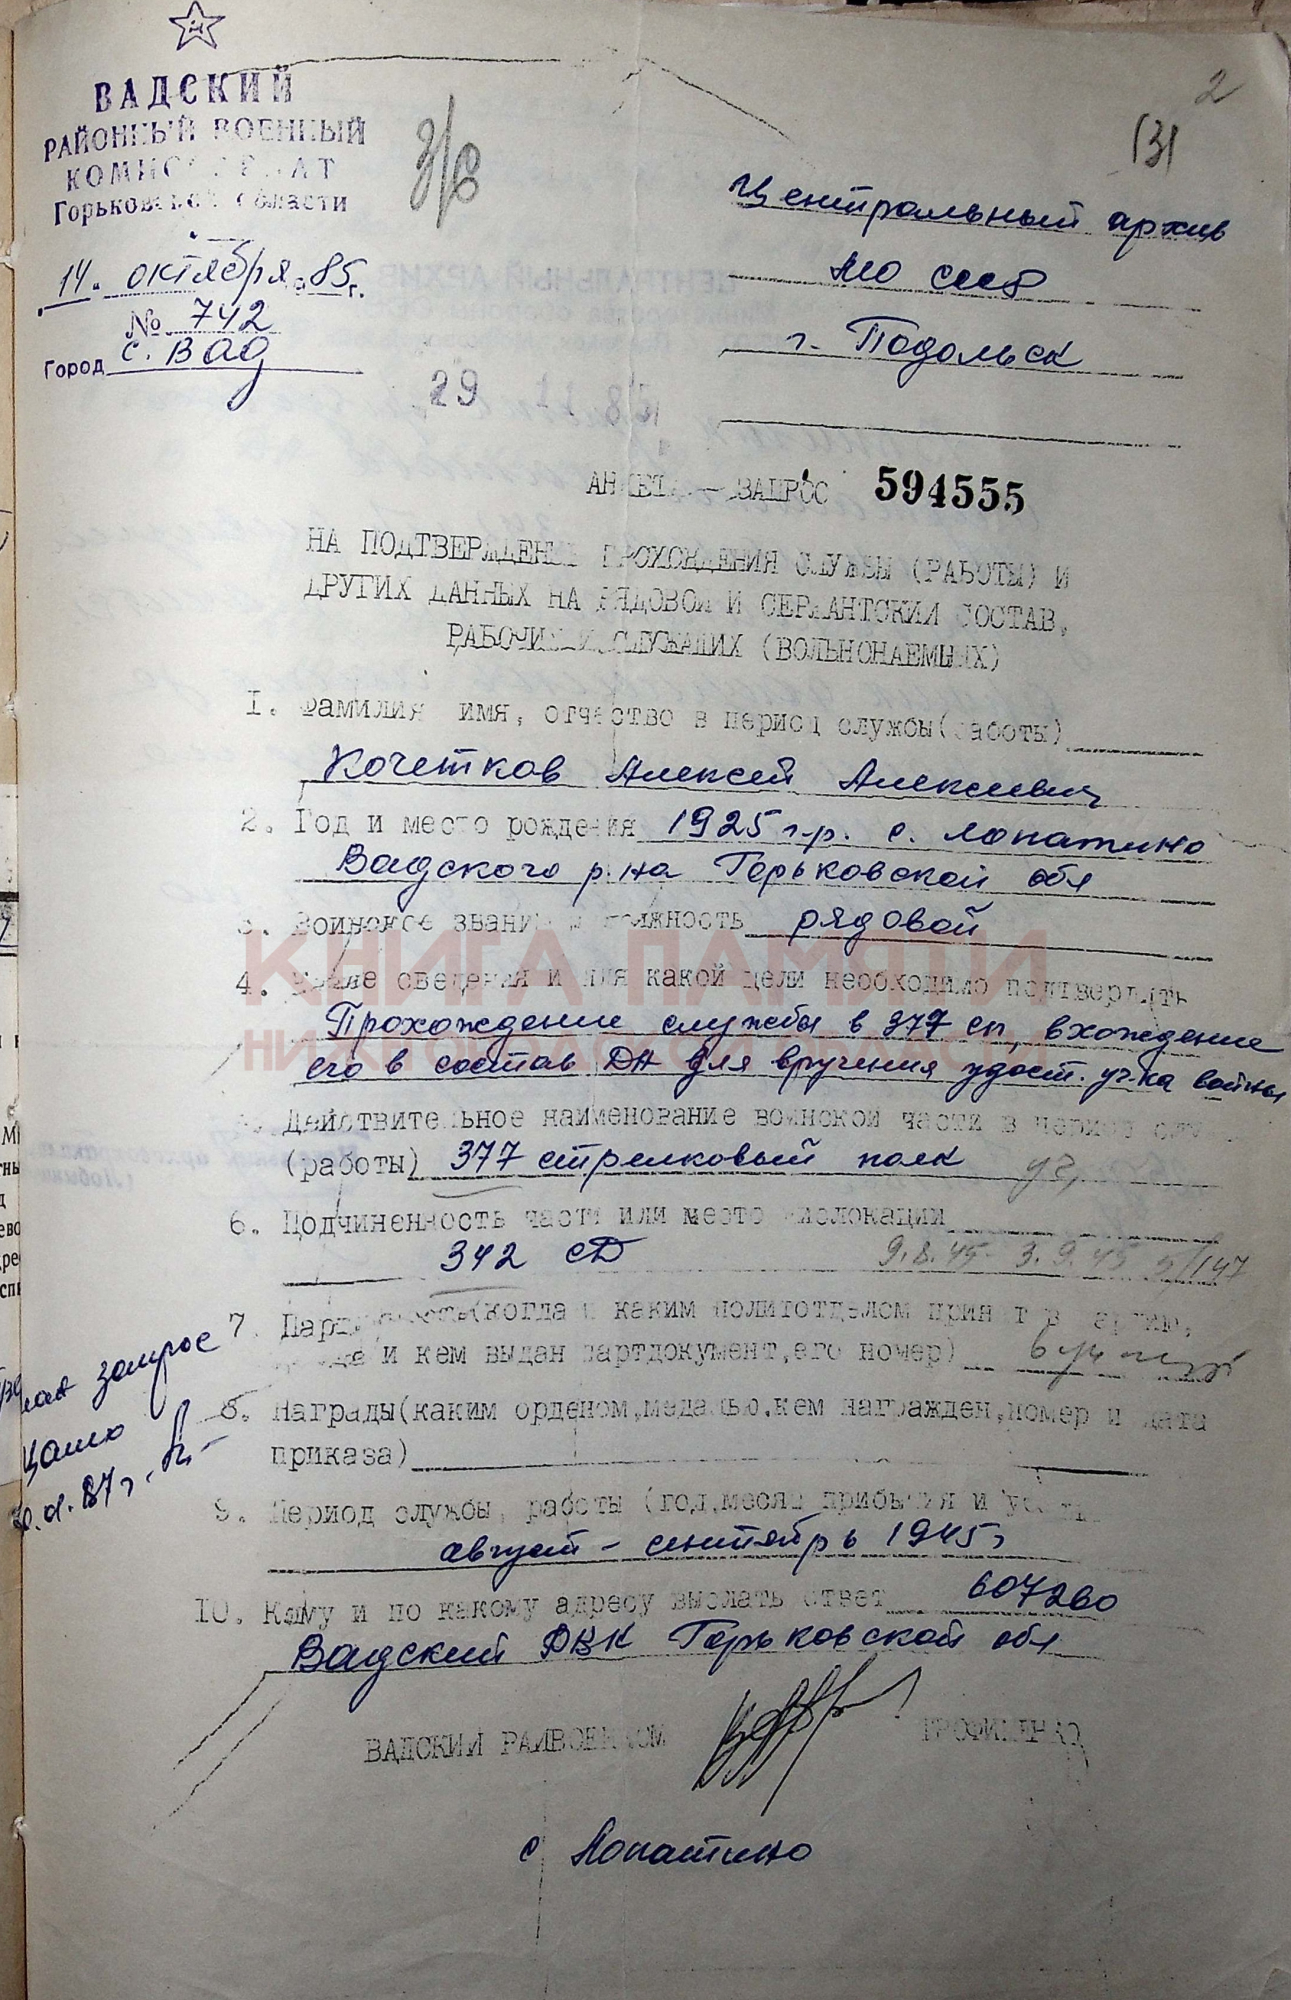 2
131
ВАДСКИЙ
РАЙОННЫЙ ВОЕННЫЙ
КОМИССАРИАТ
Горьковской области
14. октября 85г.
№ 742
Город с. Вад
Центральный архив
МО СССР
г. Подольск
29 11 85
АНКЕТА — ЗАПРОС 594555
НА ПОДТВЕРЖДЕНИЕ ПРОХОЖДЕНИЯ СЛУЖБЫ (РАБОТЫ) И
ДРУГИХ ДАННЫХ НА РЯДОВОЙ И СЕРЖАНТСКИЙ СОСТАВ,
РАБОЧИХ И СЛУЖАЩИХ (ВОЛЬНОНАЕМНЫХ)
1. Фамилия имя, отчество в период службы(работы)
Кочетков Алексей Алексеевич
2. Год и место рождения 1925 г.р. с. Лопатино
Вадского р.на Горьковской обл
3. Воинское звание и должность рядовой
4. Какие сведения и для какой цели необходимо подтвердить
Прохождение службы в 377 сп, вхождение
его в состав ДА для вручения удост. уч-ка войны
5. Действительное наименование воинской части в период служ
(работы) 377 стрелковый полк
6. Подчиненность части или место дислокации
342 сД 9.8.45 - 3.9.45 5/147
7. Партийность(когда и каким политотделом принят в партию,
когда и кем выдан партдокумент,его номер)
8. Награды(каким орденом,медалью,кем награжден,номер и дата
приказа)
9. Период службы, работы (год,месяц прибытия и убытия
август - сентябрь 1945г
10. Кому и по какому адресу выслать ответ 607260
Вадский РВК Горьковской обл
ВАДСКИЙ РАЙВОЕНКОМ ТРОФИМЕНКО
с Лопатино
запрос
87г.
КНИГА ПАМЯТИ
НИЖЕГОРОДСКОЙ ОБЛАСТИ